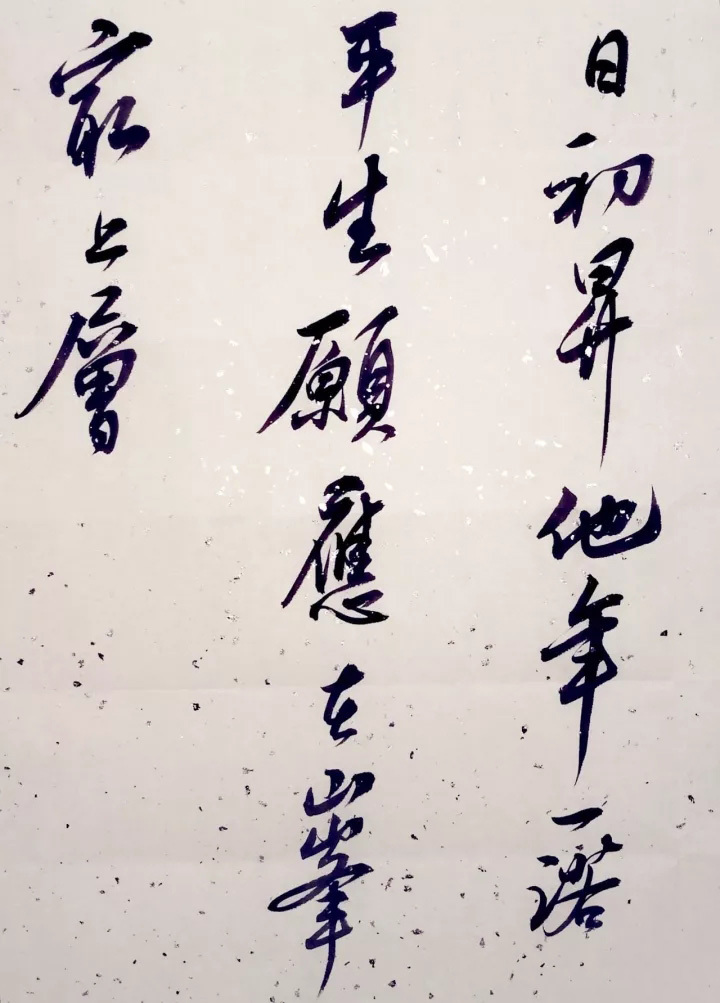 日初昇他年一諾
平生願應在山峯
最上層